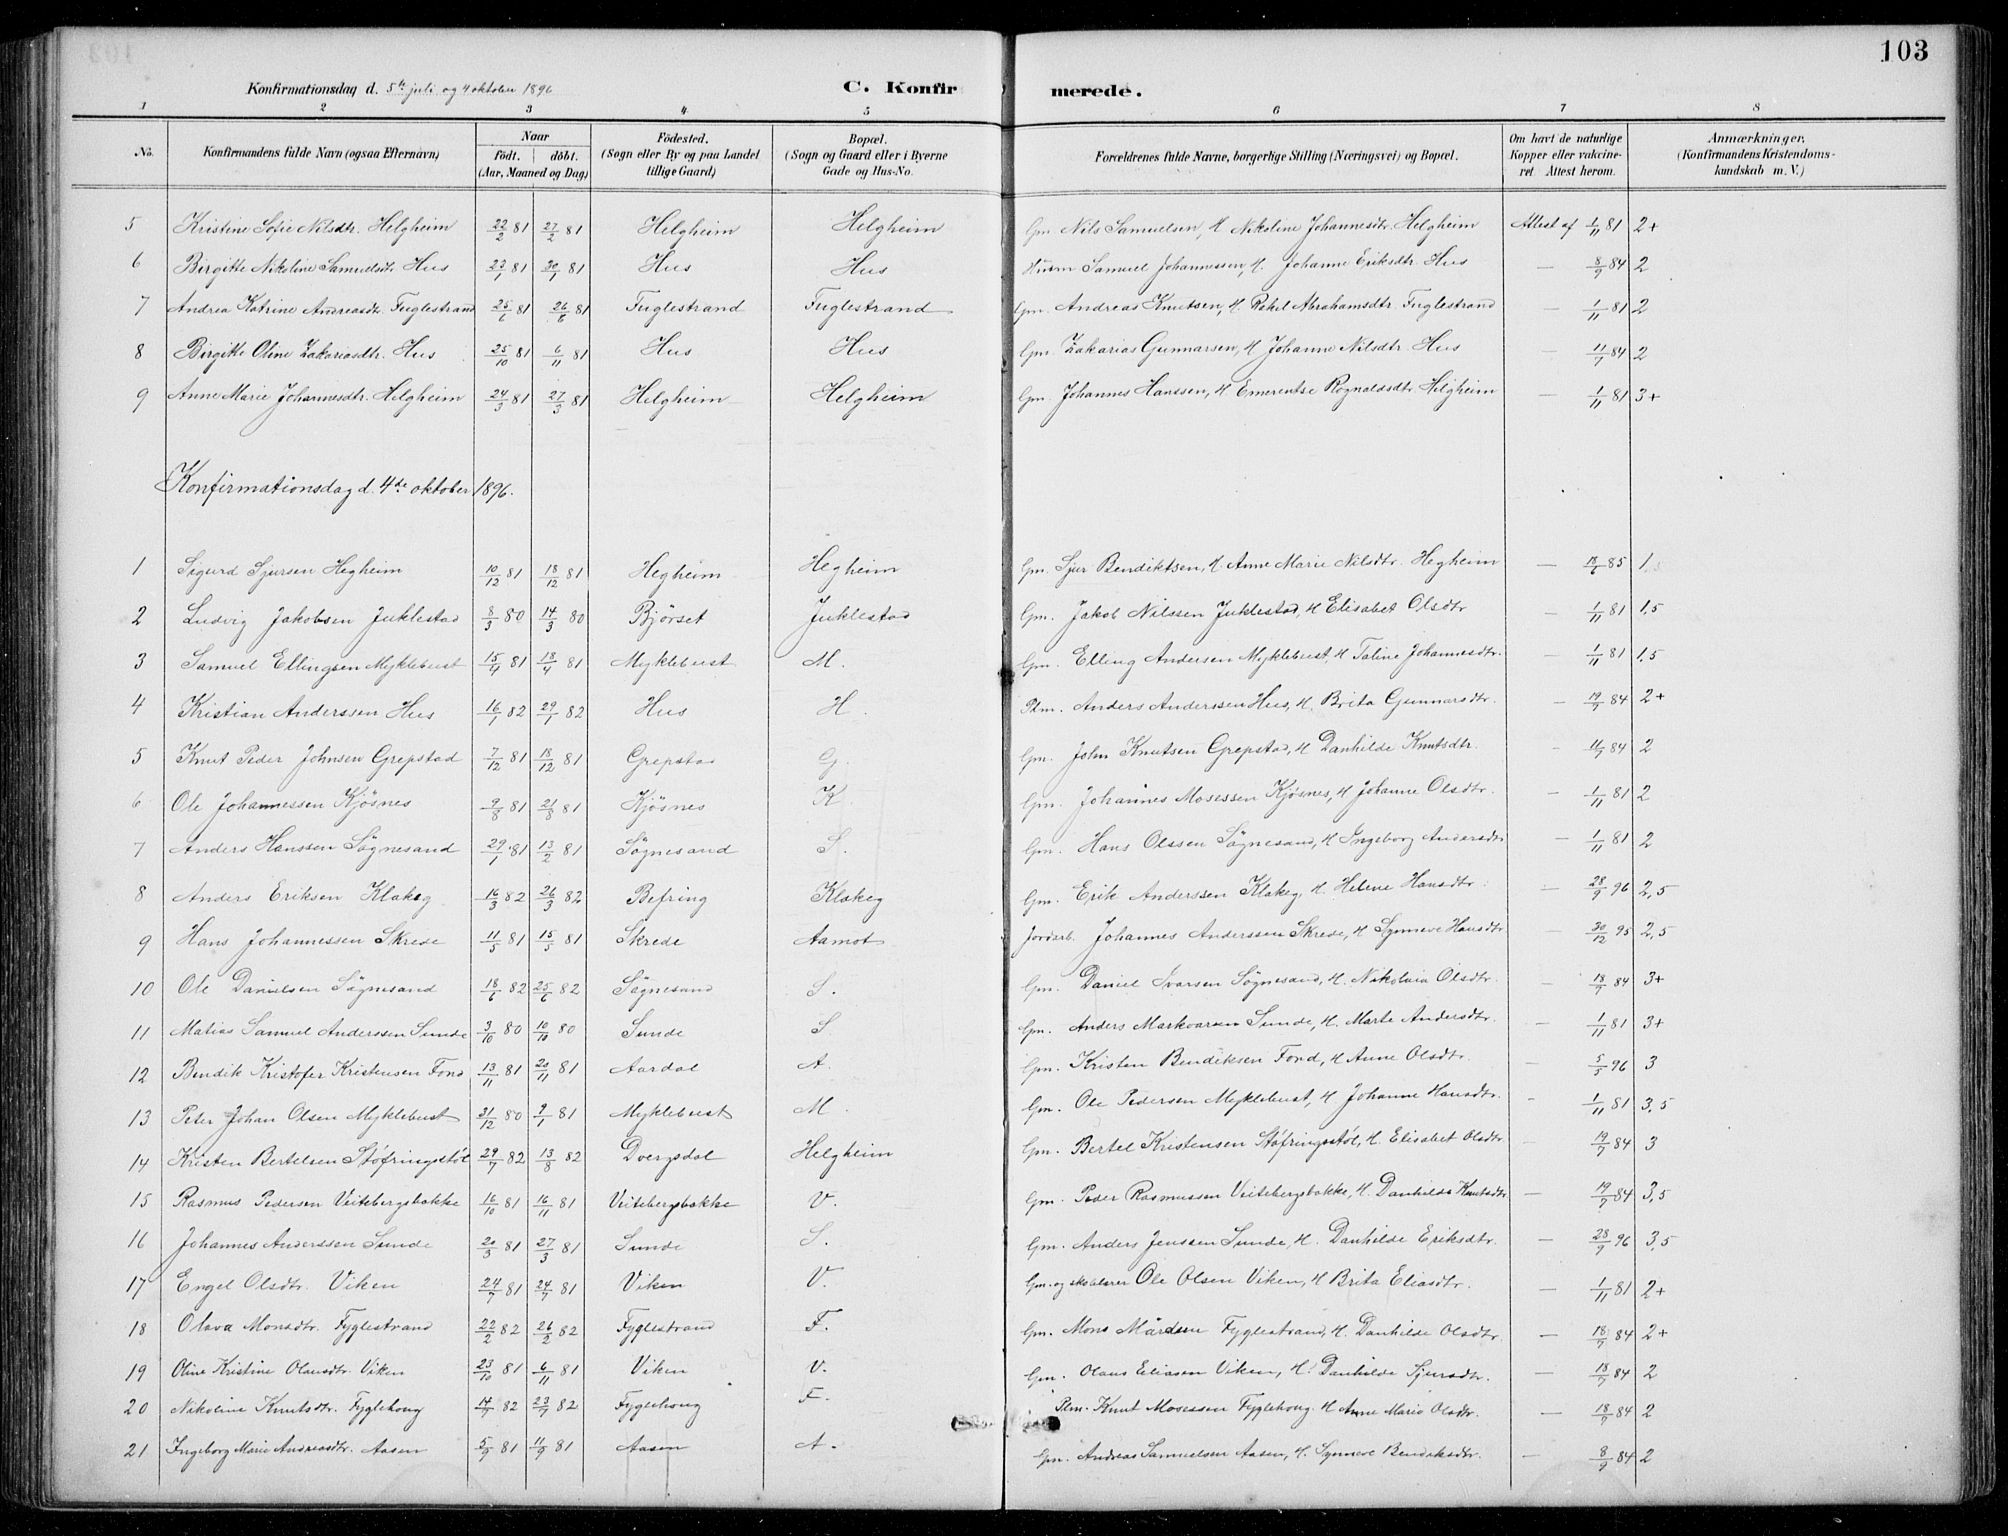 103
Konfirmationsdag d. 5te juli og 4 oktober 1896
C. Konfirmerede.
1 2 3 4 5 6 7 8
No. | Konfirmandens fulde Navn (ogsaa Efternavn) | Naar födt. | döbt. (Aar, Maaned og Dag) | Födested. (Sogn eller By og paa Landet tillige Gaard) | Bopæl. (Sogn og Gaard eller i Byerne Gade og Hus-No. | Forældrenes fulde Navne, borgerlige Stilling (Næringsvei) og Bopæl. | Om havt de naturlige Kopper eller vakcineret. Attest herom. | Anmærkninger. (Konfirmandens Kristendomskundskab m. V.)
5 Kristine Sofie Nilsdtr. Helgheim 22/2 81 27/2 81 Helgheim Helgheim Gm. Nils Samuelsen, H. Nikoline Johannesdtr. Helgheim Attest af 1/11 81 2+
6 Birgitte Nikoline Samuelsdtr Hus 23/1 81 30/1 81 Hus Hus Husm Samuel Johannessen, H. Johanne Eriksdtr. Hus — 8/9 84 2
7 Andrea Katrine Andreasdtr. Fuglestrand 25/6 81 26/6 81 Fuglestrand Fuglestrand Gm. Andreas Knutsen, H. Rakel Abrahamsdtr. Fuglestrand — 1/11 81 2
8 Birgitte Oline Zakariasdtr. Hus 25/10 81 6/11 81 Hus Hus Gm. Zakarias Gunnarsen, H Johanne Nilsdtr. Hus — 11/7 84 2
9 Anne Marie Johannesdtr. Helgheim 24/3 81 27/3 81 Helgheim Helgheim Gm. Johannes Hanssen, H. Emerentse Rognaldsdtr. Helgheim — 1/11 81 3+
Konfirmationsdag d. 4de oktober 1896.
1 Sigurd Sjursen Hegheim 10/12 81 18/12 81 Hegheim Hegheim Gm. Sjur Bendiktsen, H. Anne Marie Nilsdtr. Hegheim — 18/6 85 1,5
2 Ludvig Jakobsen Juklestad 8/3 80 14/3 80 Bjørset Juklestad Gm. Jakob Nilssen Juklestad, H Elisabet Olsdtr — 1/11 81 1,5
3 Samuel Ellingsen Myklebust 15/4 81 18/4 81 Myklebust M. Gm. Elling Andersen Myklebust, H Taline Johannesdtr. — 1/11 81 1,5
4 Kristian Anderssen Hus 16/1 82 29/1 82 Hus H. Plm. Anders Anderssen Hus, H. Brita Gunnarsdtr. — 19/7 84 2+
5 Knut Peder Johnsen Grepstad 7/12 81 18/12 81 Grepstad G. Gm. John Knutsen Grepstad, H Danhilde Knutsdtr. — 11/7 84 2
6 Ole Johannessen Kjösnes 9/8 81 21/8 81 Kjösnes K. Gm. Johannes Mosessen Kjösnes, H Johanne Olsdtr. — 1/11 81 2
7 Anders Hanssen Sögnesand 29/1 81 13/2 81 Sögnesand S. Gm. Hans Olssen Sögnesand, H Ingeborg Andersdtr — 1/11 81 2
8 Anders Eriksen Klakeg 16/3 82 26/3 82 Befring Klakeg Gm. Erik Anderssen Klakeg, H. Helene Hansdtr. — 28/9 96 2,5
9 Hans Johannessen Skrede 11/5 81 15/5 81 Skrede Aamot Jordarb. Johannes Anderssen Skrede, H Synneve Hansdtr — 30/12 95 2,5
10 Ole Danielsen Sögnesand 18/6 82 25/6 82 Sögnesand S. Gm. Daniel Ivarsen Sögnesand, H. Nikolaia Olsdtr. — 18/7 84 3+
11 Matias Samuel Anderssen Sunde 3/10 80 10/10 80 Sunde S Gm. Anders Markvarsen Sunde, H. Marte Andersdtr. — 1/11 81 3+
12 Bendik Kristofer Kristensen Fond 13/11 81 20/11 81 Aardal A. Gm. Kristen Bendiksen Fond, H Anne Olsdtr. — 5/5 96 3
13 Peter Johan Olsen Myklebust 31/12 80 9/1 81 Myklebust M. Gm. Ole Pedersen Myklebust, H Johanne Hansdtr. — 1/11 81 3,5
14 Kristen Bertelsen Stöfringsstöl 29/7 82 13/8 82 Dvergsdal Helgheim Gm. Bertel Kristensen Stöfringsstöl, H. Elisabet Olsdtr — 19/7 84 3
15 Rasmus Pedersen Veitebergsbakke 16/10 81 16/11 81 Veitebergsbakke V. Gm. Peder Rasmussen Veitebergsbakke, H. Danhilde Knutsdtr — 19/7 84 3,5
16 Johannes Anderssen Sunde 20/3 81 27/3 81 Sunde S. Gm. Anders Jenssen Sunde, H. Danhilde Eriksdtr. — 28/9 96 3,5
17 Engel Olsdtr. Viken 24/7 81 24/7 81 Viken V. Gm. og skolelærer Ole Olsen Viken, H Brita Eliasdtr. — 1/11 81 2+
18 Olava Monsdtr. Fyglestrand 22/2 82 26/2 82 Fyglestrand F. Gm. Mons Mårdsen Fyglestrand, H. Danhilde Olsdtr. — 18/7 84 2+
19 Oline Kristine Olausdtr. Viken 23/10 81 6/11 81 Viken V. Gm. Olaus Eliasen Viken, H. Danhilde Sjursdtr. — 18/7 84 2
20 Nikoline Knutsdtr. Fyglehoug 14/7 82 23/7 82 Fyglehoug F. Plm. Knut Mosessen Fyglehoug. H Anne Marie Olsdtr. — 18/7 84 2
21 Ingeborg Marie Andreasdtr. Aasen 5/9 81 11/9 81 Aasen A. Gm. Andreas Samuelsen Aasen, H. Synneve Bendiksdtr. — 8/9 84 2